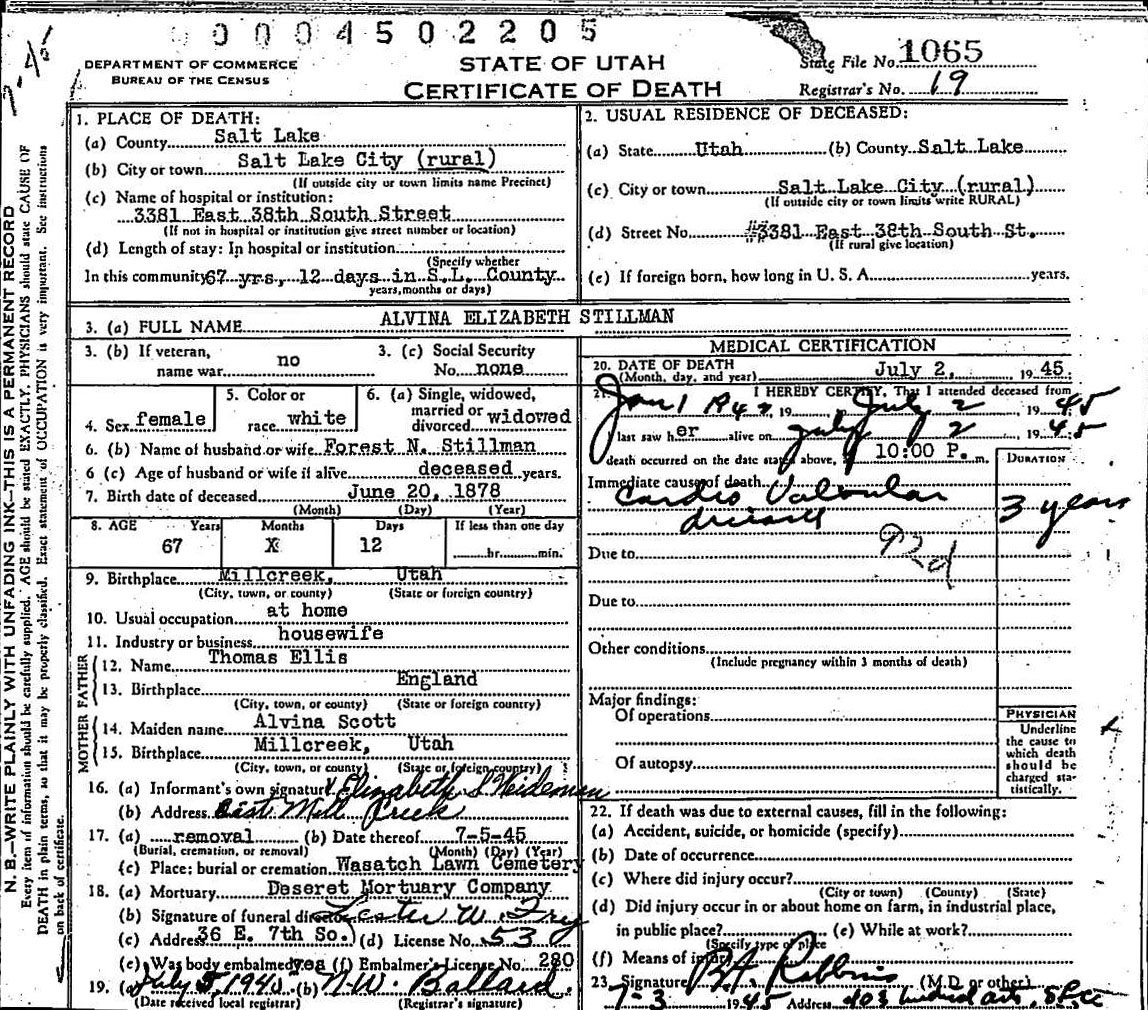 0004502205
7-45
DEPARTMENT OF COMMERCE
BUREAU OF THE CENSUS
STATE OF UTAH
CERTIFICATE OF DEATH
State File No. 1065
Registrar's No. 19
N. B.—WRITE PLAINLY WITH UNFADING INK—THIS IS A PERMANENT RECORD
Every item of information should be carefully supplied. AGE should be stated EXACTLY. PHYSICIANS should state CAUSE OF
DEATH in plain terms, so that it may be properly classified. Exact statement of OCCUPATION is very important. See instructions
on back of certificate.
1. PLACE OF DEATH:
(a) County Salt Lake
(b) City or town Salt Lake City (rural)
(If outside city or town limits name Precinct)
(c) Name of hospital or institution:
3381 East 38th South Street
(If not in hospital or institution give street number or location)
(d) Length of stay: In hospital or institution
(Specify whether
In this community 67 yrs, 12 days in S.L. County
years, months or days)
2. USUAL RESIDENCE OF DECEASED:
(a) State Utah (b) County Salt Lake
(c) City or town Salt Lake City (rural)
(If outside city or town limits write RURAL)
(d) Street No. #3381 East 38th South St.
(If rural give location)
(e) If foreign born, how long in U. S. A. years.
3. (a) FULL NAME ALVINA ELIZABETH STILLMAN
3. (b) If veteran, name war no
3. (c) Social Security No. none
4. Sex female
5. Color or race white
6. (a) Single, widowed, married or divorced widowed
6. (b) Name of husband or wife Forest N. Stillman
6 (c) Age of husband or wife if alive deceased years.
7. Birth date of deceased June 20, 1878
(Month) (Day) (Year)
8. AGE Years Months Days If less than one day
67 X 12 hr. min.
9. Birthplace Millcreek, Utah
(City, town, or county) (State or foreign country)
10. Usual occupation at home
11. Industry or business housewife
FATHER
12. Name Thomas Ellis
13. Birthplace England
(City, town, or county) (State or foreign country)
MOTHER
14. Maiden name Alvina Scott
15. Birthplace Millcreek, Utah
(City, town, or county) (State or foreign country)
16. (a) Informant's own signature Elizabeth S Weideman
(b) Address East Mill Creek
17. (a) removal (b) Date thereof 7-5-45
(Burial, cremation, or removal) (Month) (Day) (Year)
(c) Place: burial or cremation Wasatch Lawn Cemetery
18. (a) Mortuary Deseret Mortuary Company
(b) Signature of funeral director Lester W. Frey
(c) Address 36 E. 7th So. (d) License No. 53
(e) Was body embalmed yes (f) Embalmer's License No. 280
19. (a) July 5, 194 (b) N.W. Ballard.
(Date received local registrar) (Registrar's signature)
MEDICAL CERTIFICATION
20. DATE OF DEATH July 2, 1945.
(Month, day, and year)
21. I HEREBY CERTIFY, That I attended deceased from
Jan 1, 19 July 2, 1945
last saw her alive on July 2, 1945
death occurred on the date stated above, 10:00 P. m.
DURATION
Immediate cause of death
Cardio Valvular
disease
3 years
Due to 92d
Due to
Other conditions
(Include pregnancy within 3 months of death)
Major findings:
Of operations
Of autopsy
PHYSICIAN
Underline
the cause to
which death
should be
charged sta-
tistically.
22. If death was due to external causes, fill in the following:
(a) Accident, suicide, or homicide (specify)
(b) Date of occurrence
(c) Where did injury occur?
(City or town) (County) (State)
(d) Did injury occur in or about home on farm, in industrial place,
in public place? (e) While at work?
(Specify type of place
(f) Means of injury
23. Signature Robbins (M.D. or other)
7-3 1945 Address 403 Medical arts, SLC